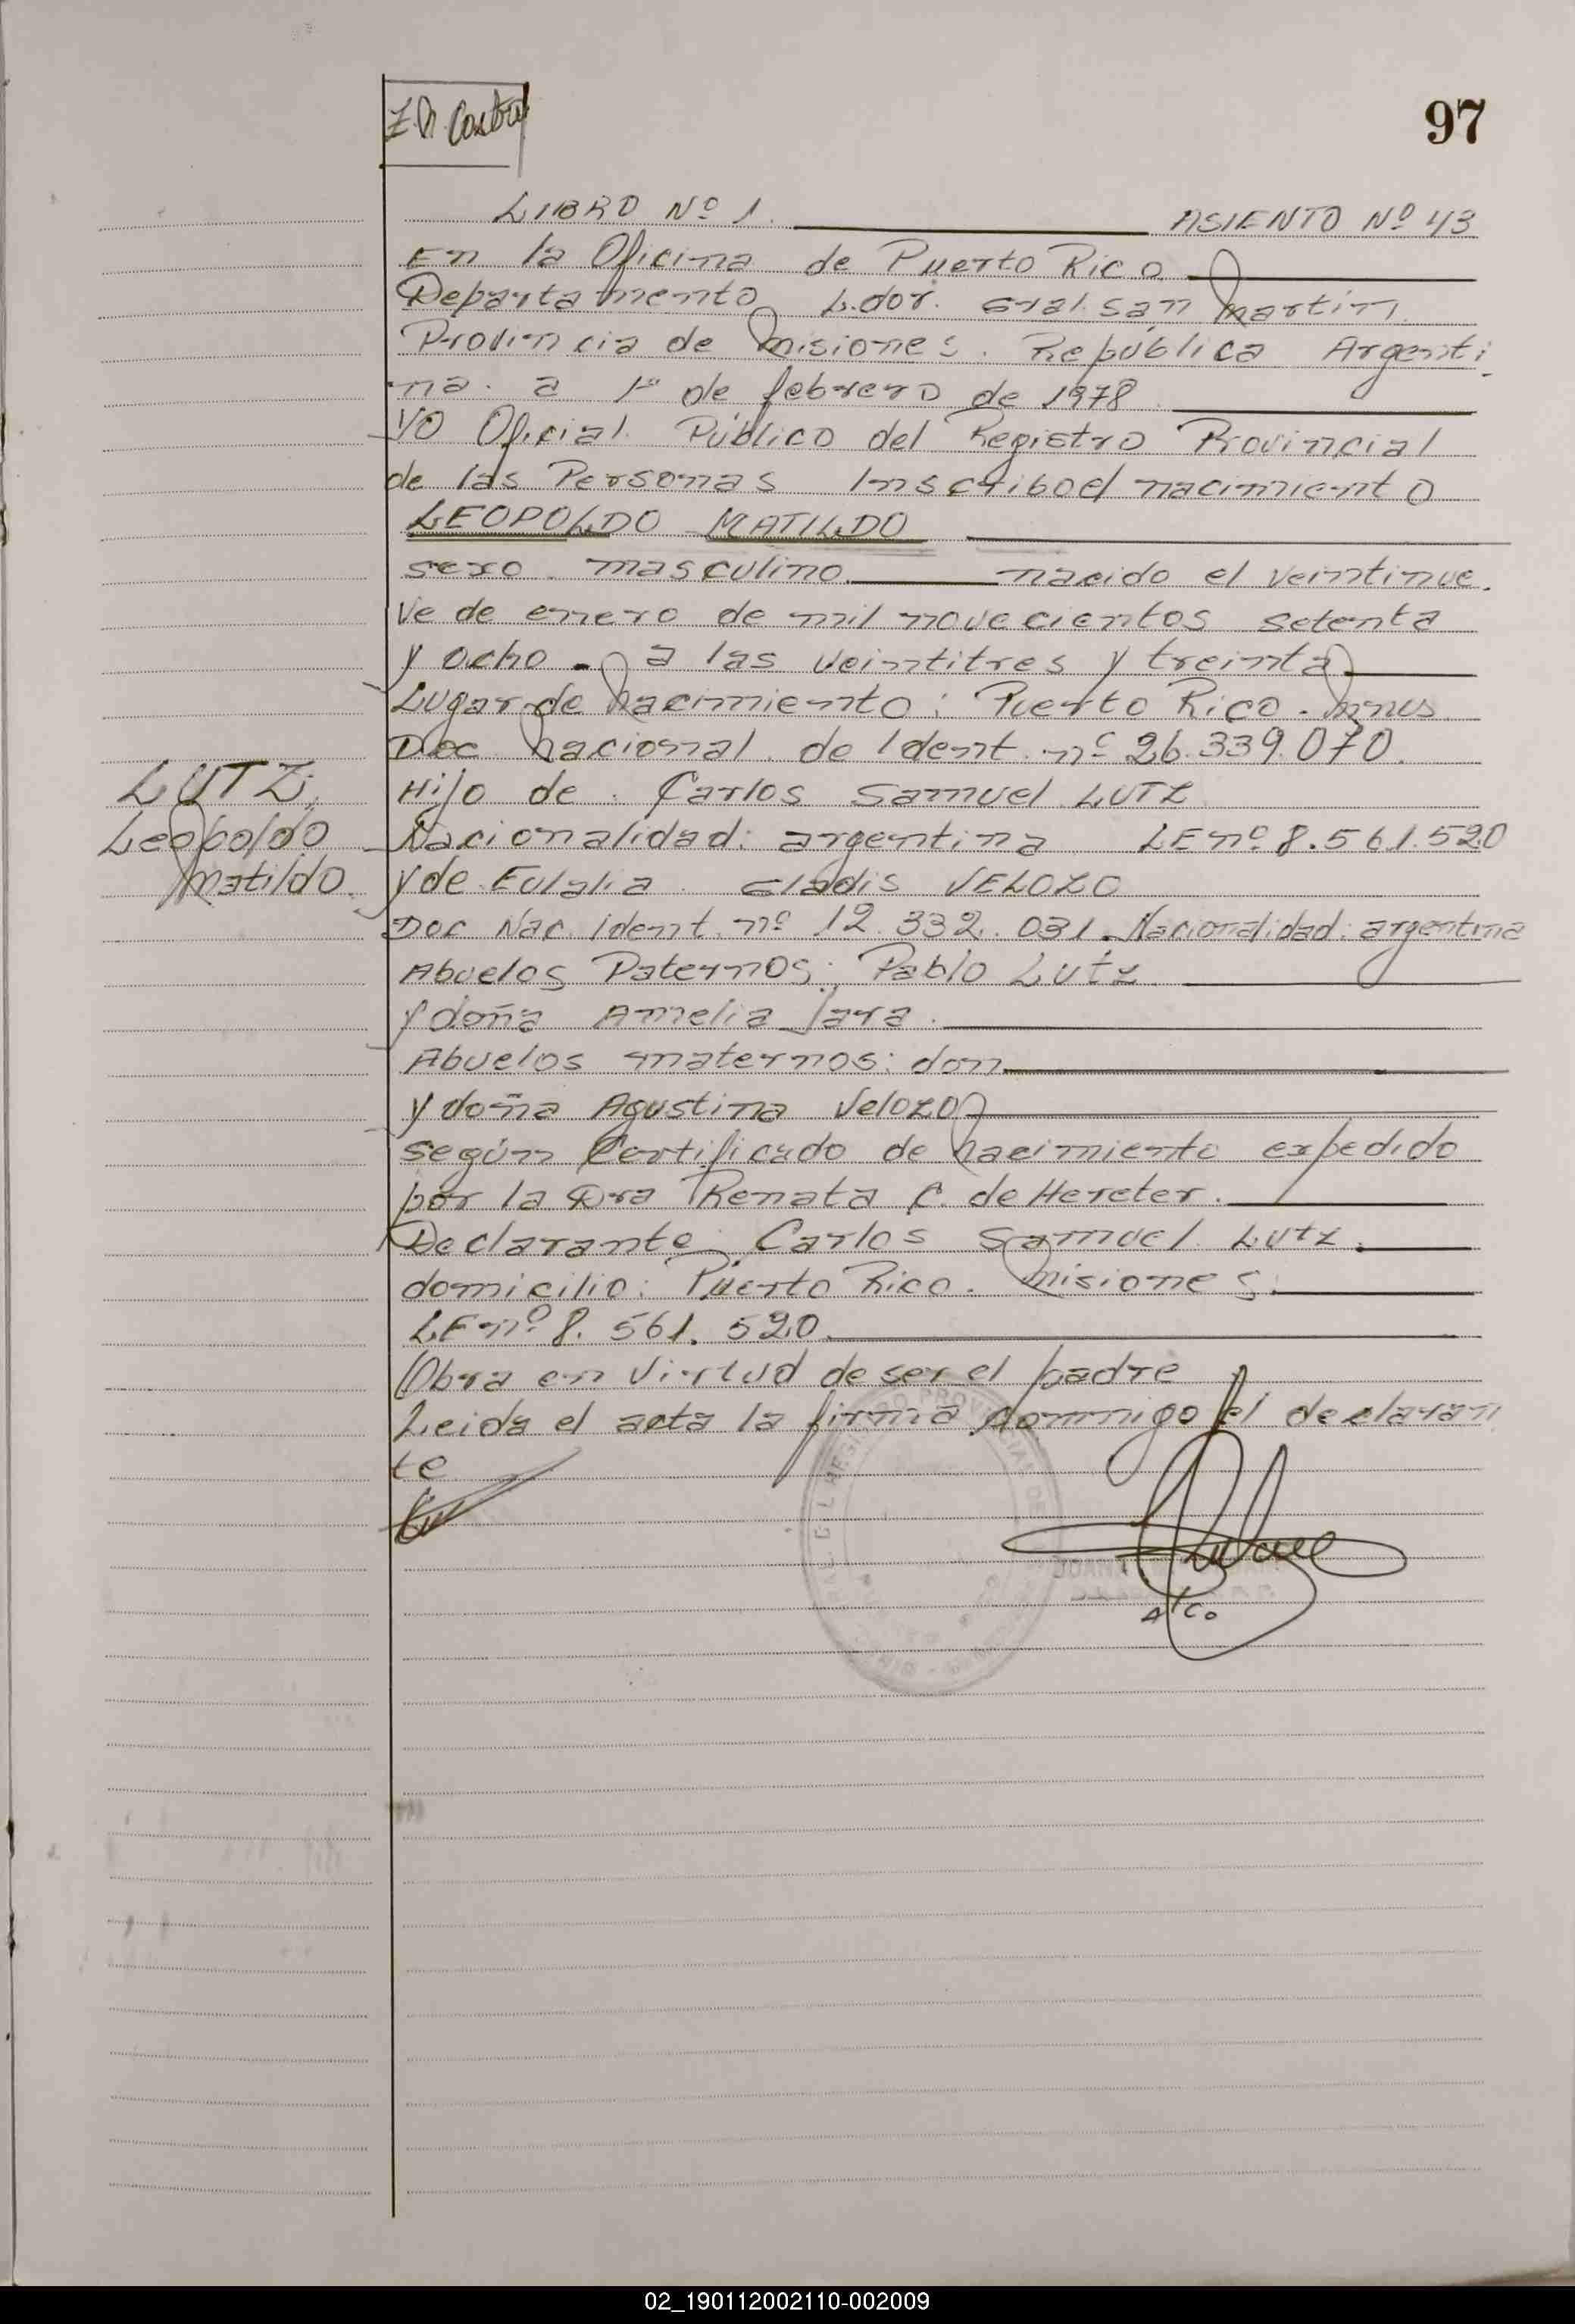 97
LIBRO Nº 1. ASIENTO Nº 43
En la Oficina de Puerto Rico
Departamento L.dor. Gral. san Martín
Provincia de Misiones. República Argenti
na. a 1º de febrero de 1978
YO Oficial Público del Registro Provincial
de las Personas Inscribo el nacimiento
LEOPOLDO MATILDO
sexo masculino. nacido el veintinue.
ve de enero de mil novecientos setenta
y ocho - a las veintitres y treinta
Lugar de Nacimiento: Puerto Rico. Mnes
Doc Nacional de Ident. nº 26.339.070.
Hijo de Carlos Samuel LUTZ
LUTZ,
Leopoldo
Matildo.
Nacionalidad: argentina LE nº 8.561.520
y de Eulalia Gladis VELOZO
Doc Nac. Ident. nº 12.332.031. Nacionalidad: argentina
Abuelos Paternos: Pablo Lutz
y doña Amelia Jara.
Abuelos maternos: don
y doña Agustina Velozo
según Certificado de Nacimiento expedido
por la Dra Renata C. de Hereter.
Declarante Carlos Samuel Lutz.
domicilio: Puerto Rico. Misiones.
LE nº 8.561.520
Obra en virtud de ser el padre
Leida el acta la firma conmigo el declaran
te
02_190112002110-002009